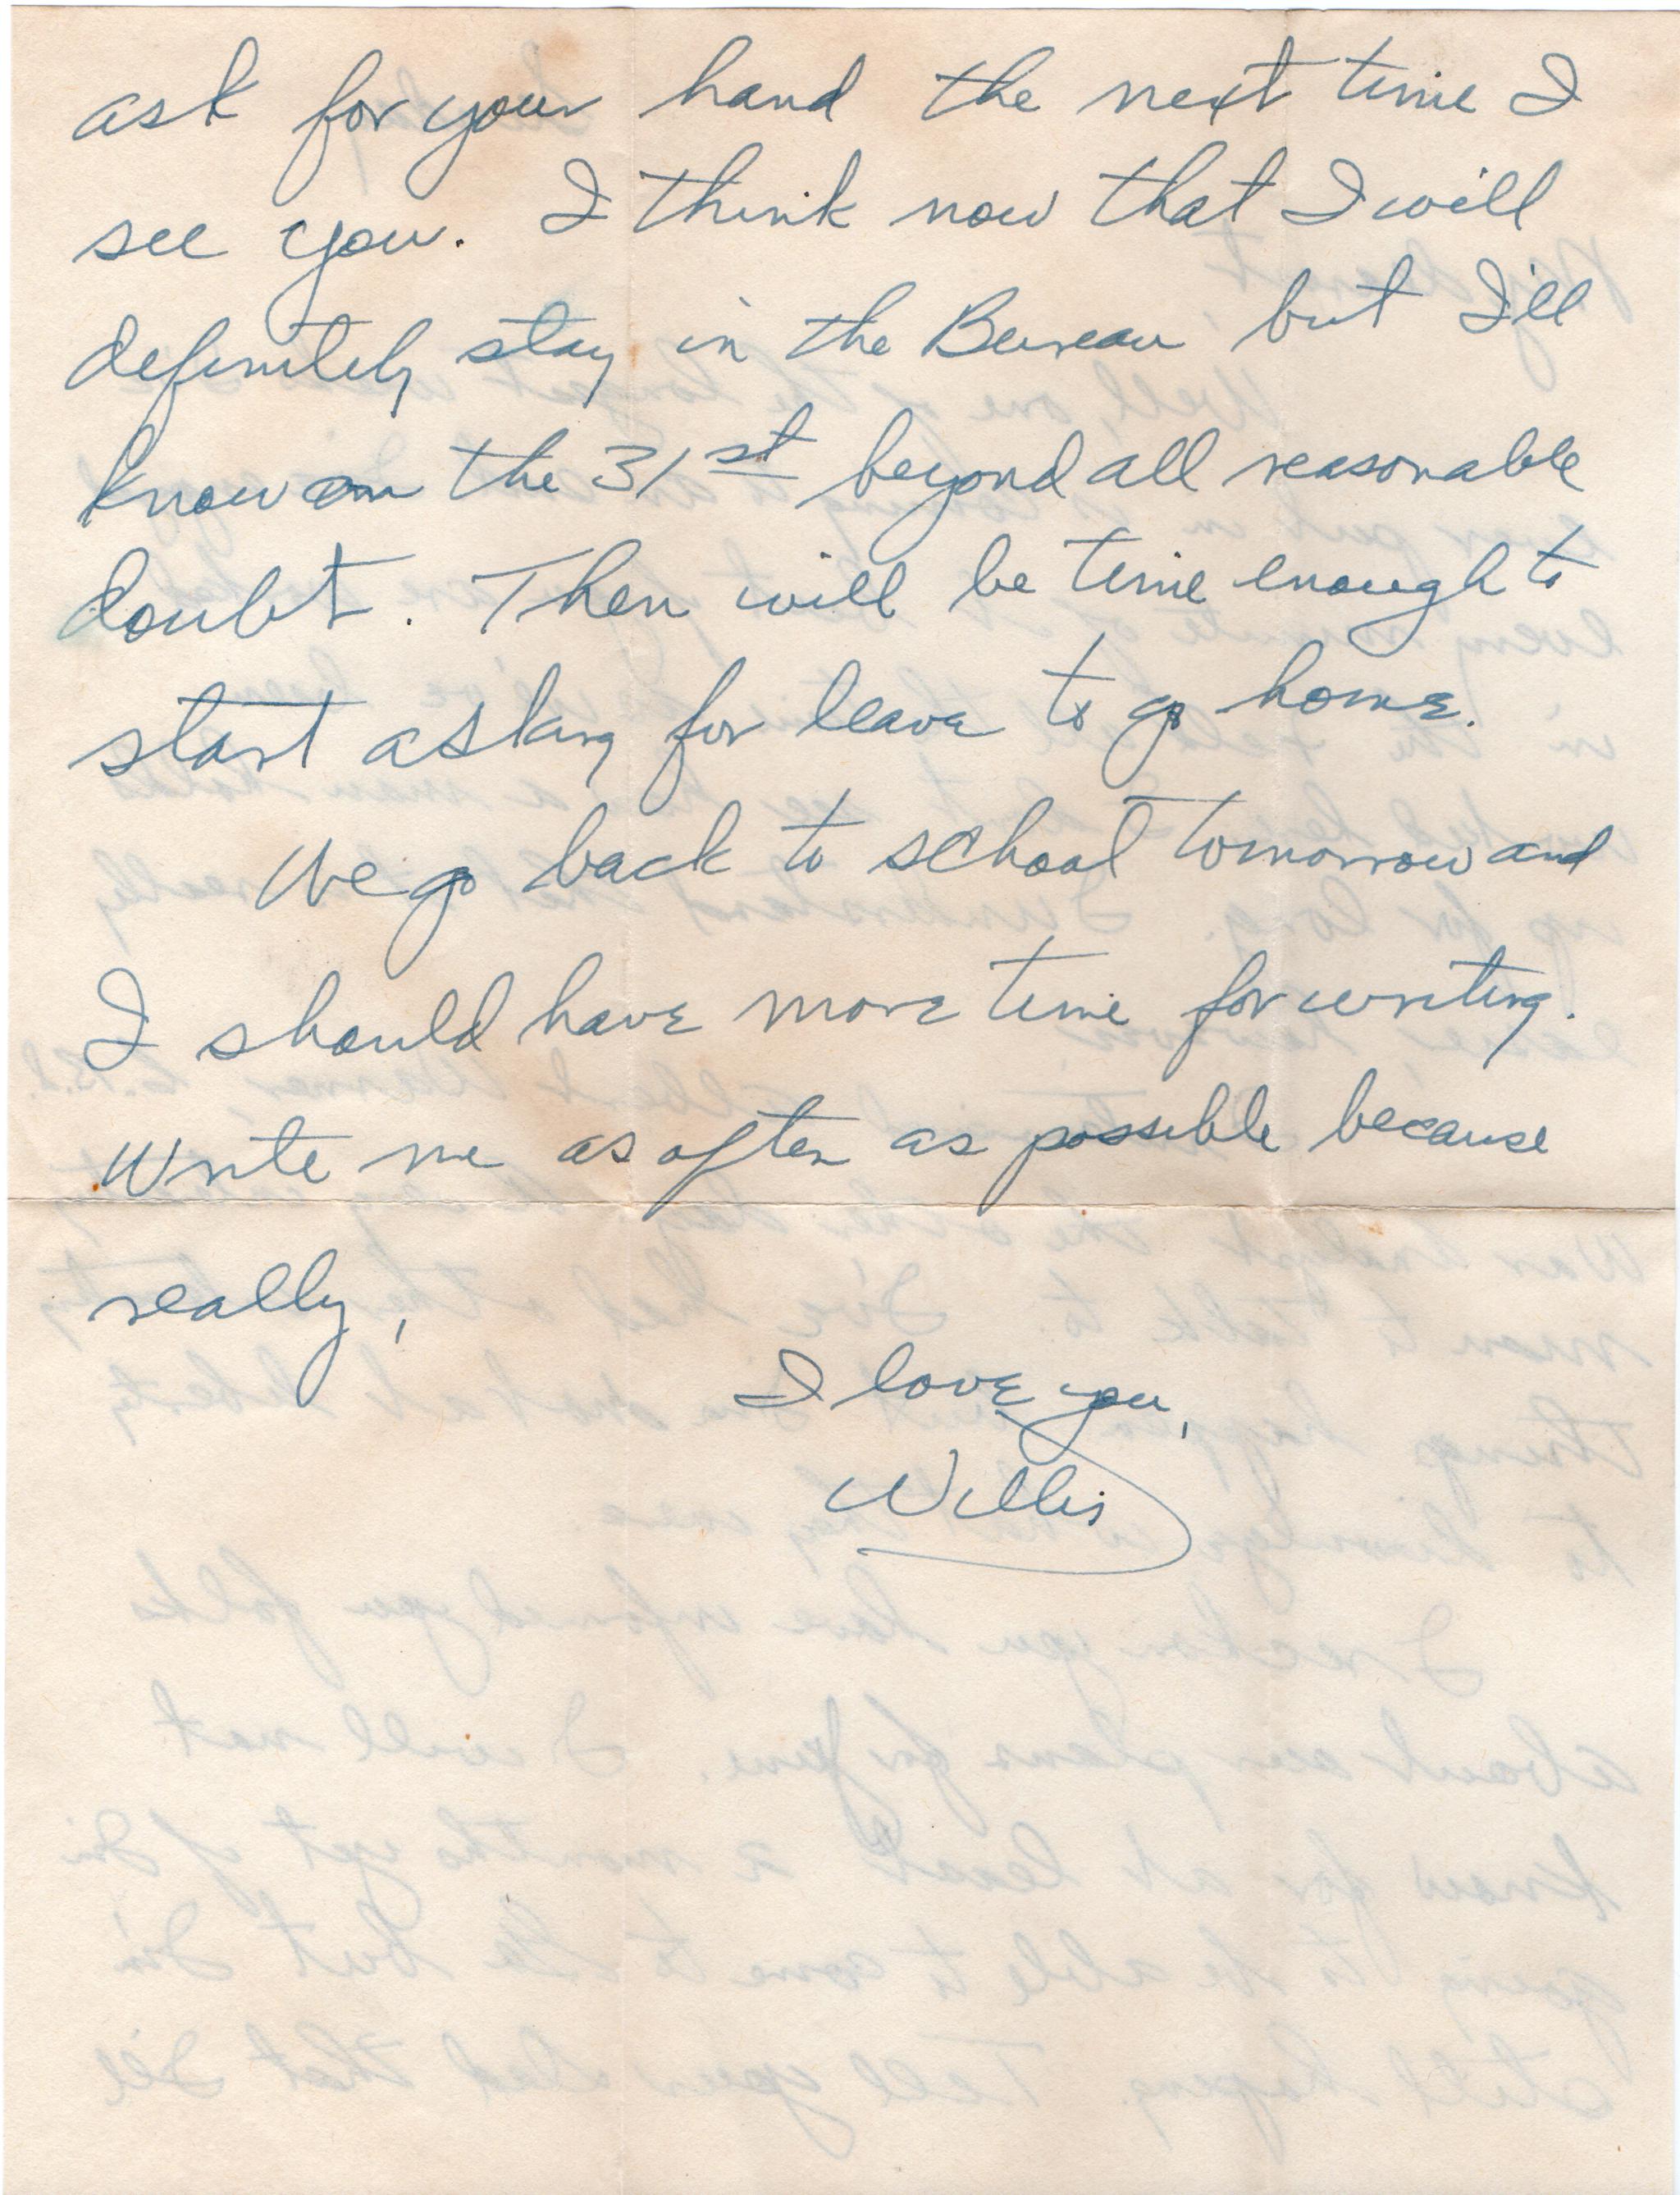 ask for your hand the next time I
see you. I think now that I will
definitely stay in the Bureau but I'll
know on the 31st beyond all reasonable
doubt. Then will be time enough to
start asking for leave to go home.
We go back to school tomorrow and
I should have more time for writing.
Write me as often as possible because
really,
I love you,
Willis